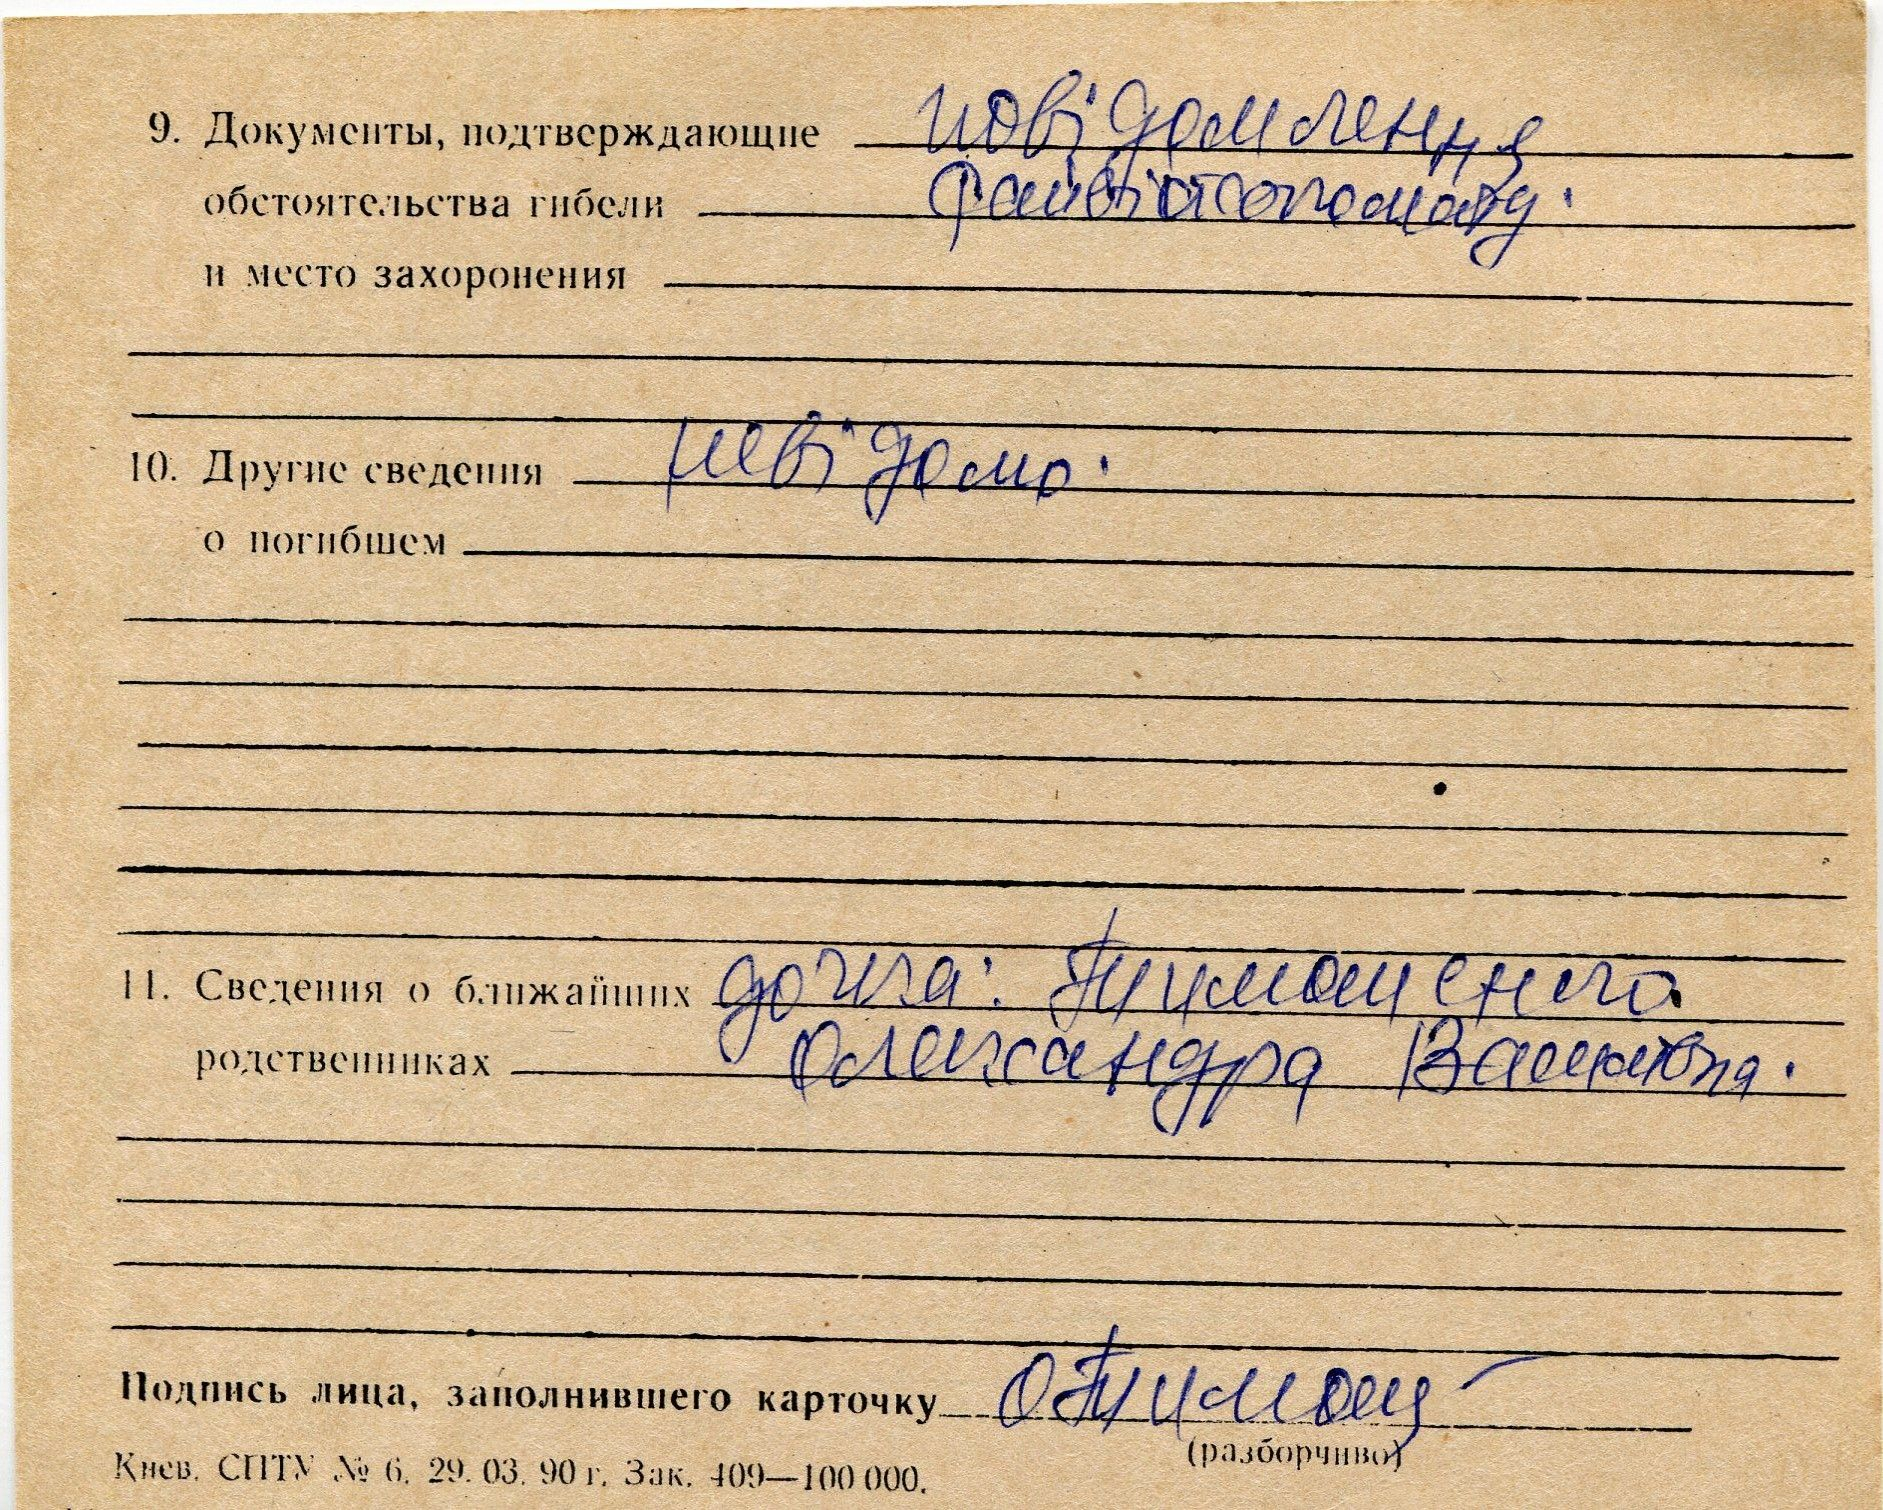 9. Документы, подтверждающие повідомлення
обстоятельства гибели райвійськомату.
и место захоронения
10. Другие сведения невідомо.
о погибшем
11. Сведения о ближайших дочка: Тимошенко
родственниках Олександра
Подпись лица, заполнившего карточку ОТимощ
(разборчиво)
Киев. СПТУ № 6. 29. 03. 90 г. Зак. 409—100 000.